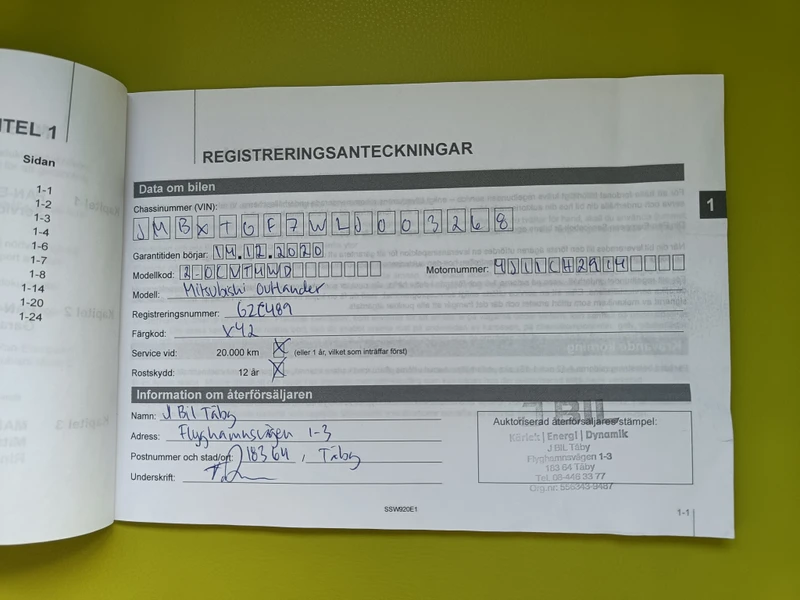 ITEL 1
Sidan
1-1
1-2
1-3
1-4
1-6
1-7
1-8
1-14
1-20
1-24
REGISTRERINGSANTECKNINGAR
1
Data om bilen
Chassinummer (VIN):
JMBXTGF7WLJ003268
Garantitiden börjar: 14.12.2020
Modellkod: 2.0CVT4WD
Motornummer: 4J11CH2914
Modell: Mitsubishi Outlander
Registreringsnummer: GZC489
Färgkod: X42
Service vid: 20.000 km X (eller 1 år, vilket som inträffar först)
Rostskydd: 12 år X
Information om återförsäljaren
Namn: J Bil Täby
Adress: Flyghamnsvägen 1-3
Postnummer och stad/ort: 18364, Täby
Underskrift:
J BIL
Auktoriserad återförsäljares stämpel:
Energi | Dynamik
J BIL Täby
Flyghamnsvägen 1-3
183 64 Täby
Tel. 08-446 33 77
Org.nr: 556343-9487
SSW920E1
1-1